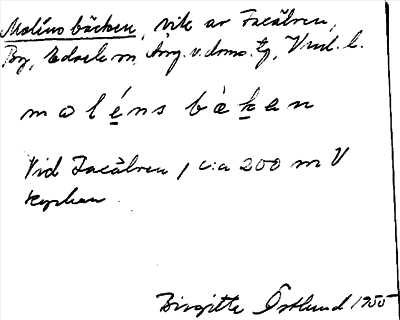 Molinsbäcken, vik av Faxälven,
By, Edsele sn, Ång. v. doms. tg, Vnl. l.
molẹ́ns bàḳan
Vid Faxälven, c:a 200 m V
kyrkan.
Birgitta Östlund 1955